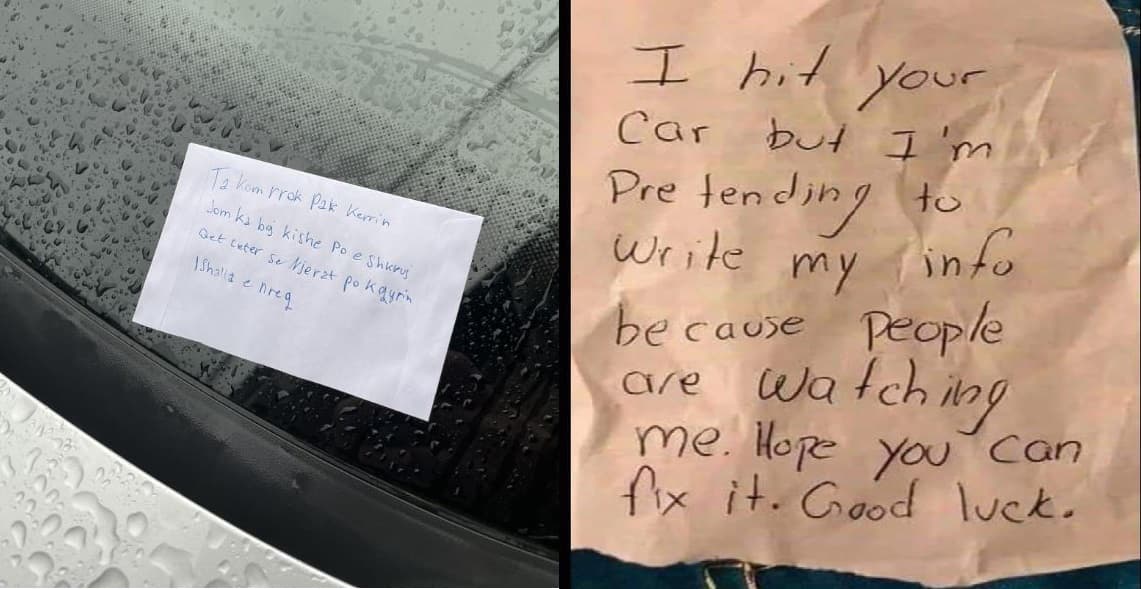 Ta kom rrok pak Kerrin
Jom ka baj kishe po e shkruj
Qet leter se Njerzt po kqyrin
Ishalla e nreq
I hit your
Car but I'm
Pretending to
Write my info
because People
are watching
me. Hope you can
fix it. Good luck.